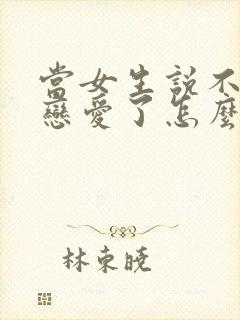 當女生說不
戀愛了怎麼
林東曉